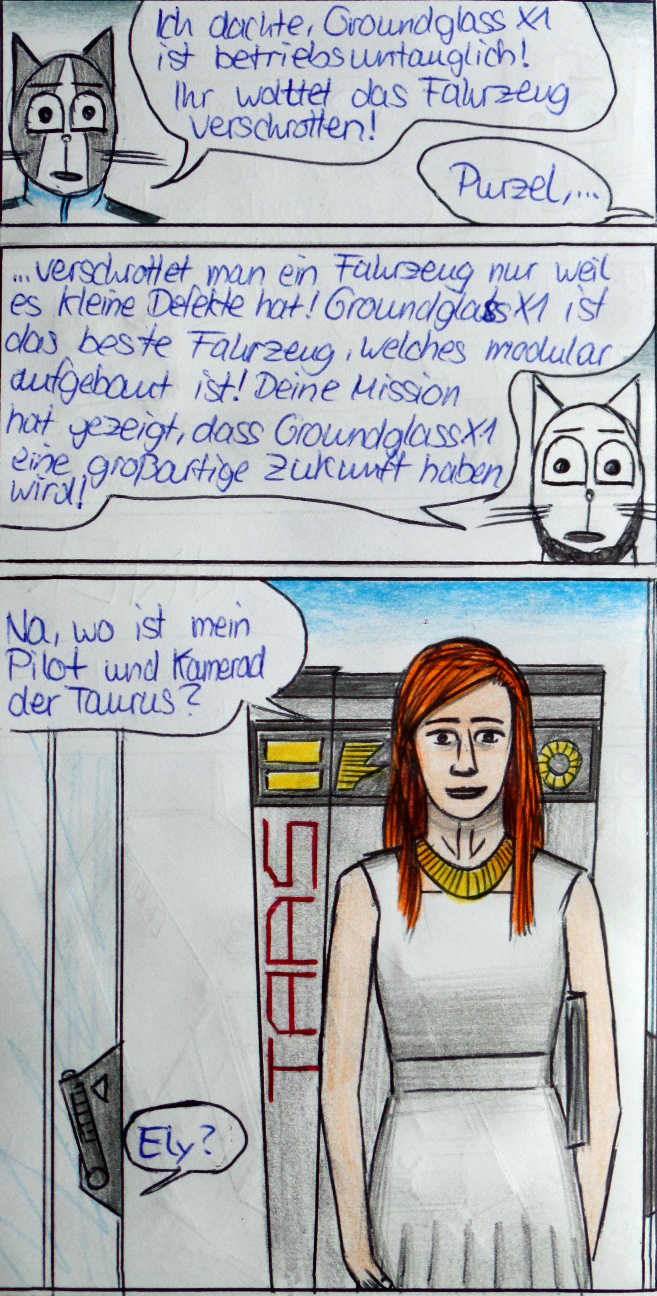 Ich dachte, Groundglass X1
ist betriebsuntauglich!
Ihr wolltet das Fahrzeug
verschrotten!
Purzel,...
...verschrottet man ein Fahrzeug nur weil
es kleine Defekte hat! Groundglass X1 ist
das beste Fahrzeug, welches modular
aufgebaut ist! Deine Mission
hat gezeigt, dass Groundglass X1
eine großartige Zukunft haben
wird!
Na, wo ist mein
Pilot und Kamerad
der Taurus?
TAAS
Ely?